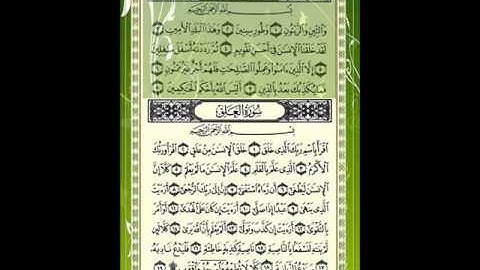 بسم الله الرحمن الرحيم
والتين والزيتون ١ وطور سينين ٢ وهذا البلد الأمين ٣
لقد خلقنا الإنسن في أحسن تقويم ٤ ثم رددنه أسفل سفلين
٥ إلا الذين ءامنوا وعملوا الصلحت فلهم أجر غير ممنون ٦
فما يكذبك بعد بالدين ٧ أليس الله بأحكم الحكمين ٨
سورة العلق
بسم الله الرحمن الرحيم
اقرأ باسم ربك الذي خلق ١ خلق الإنسن من علق ٢ اقرأ وربك
الأكرم ٣ الذي علم بالقلم ٤ علم الإنسن ما لم يعلم ٥ كلا إن
الإنسن ليطغى ٦ أن رءاه استغنى ٧ إن إلى ربك الرجعى ٨ أرءيت
الذي ينهى ٩ عبدا إذا صلى ١٠ أرءيت إن كان على الهدى ١١ أو أمر
بالتقوى ١٢ أرءيت إن كذب وتولى ١٣ ألم يعلم بأن الله يرى ١٤ كلا لئن
لم ينته لنسفعا بالناصية ١٥ ناصية كذبة خاطئة ١٦ فليدع ناديه
١٧ سندع الزبانية ١٨ كلا لا تطعه واسجد واقترب ١٩